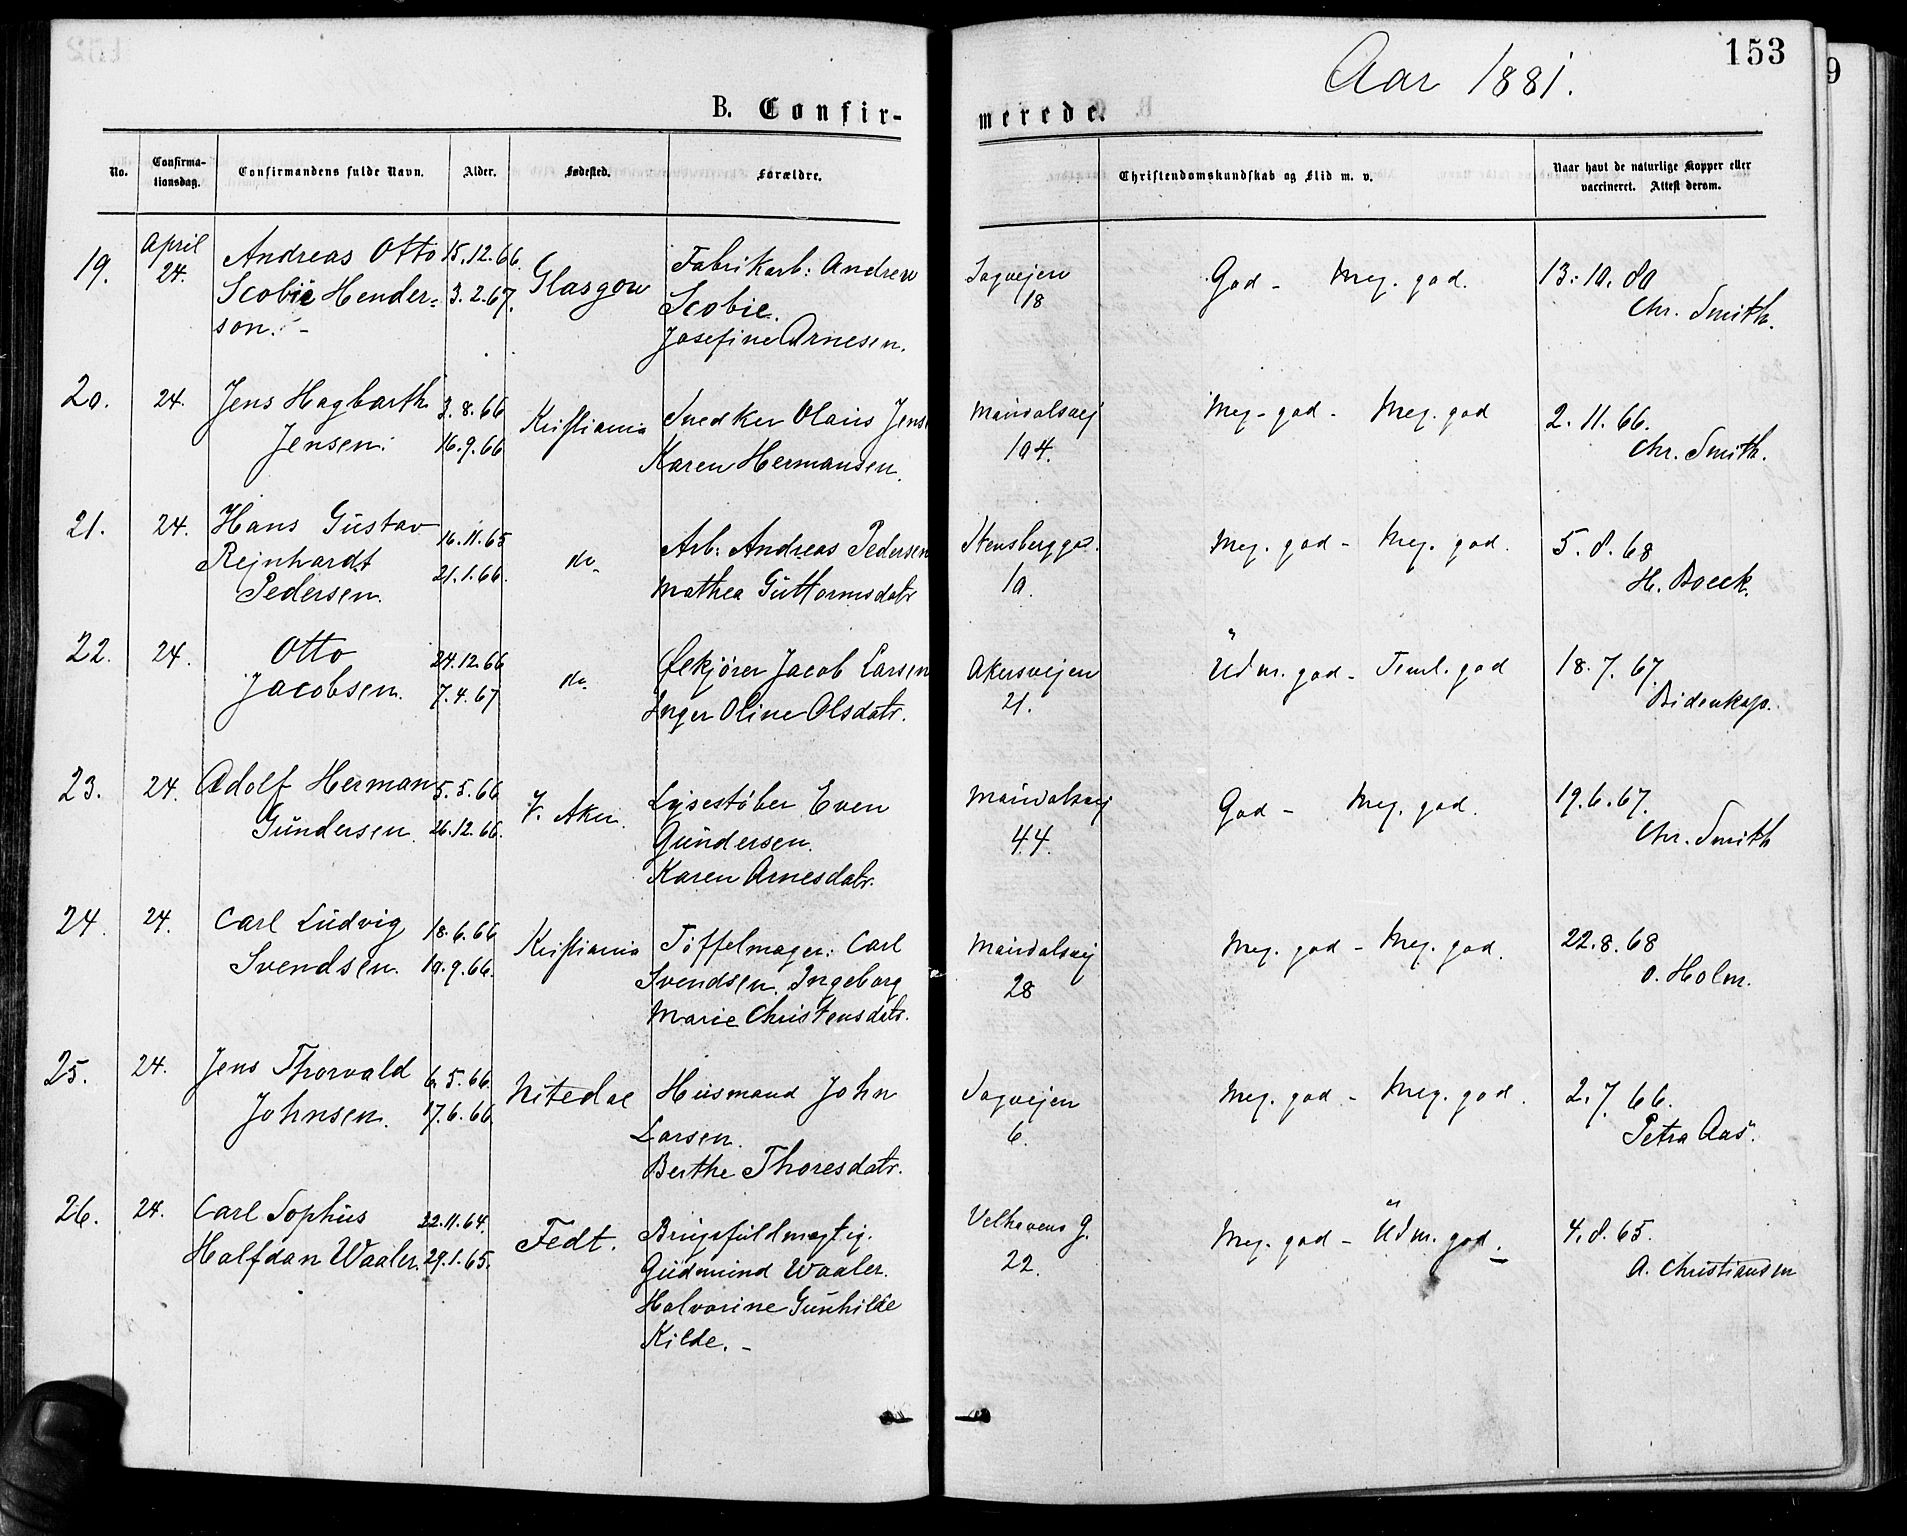 153
9
Aar 1881.
B. Confir-
merede.
No.
Confirma-
tionsdag.
Confirmandens fulde Navn.
Alder.
Fødested.
Forældre.
Christendomskundskab og Flid m. v.
Naar havt de naturlige Kopper eller
vaccineret. Attest derom.
19. April 24. Andreas Otto 15.12.66. Glasgow Fabrikarb: Andrew Sagveien God - Meg. god. 13.10.80
Scobie Hender= 3.2.67. Scobie. 18 Chr. Smith.
son. - Josefine Arnesen.
20. 24. Jens Hagbarth 3.8.66 Kristiania Snedker Olaus Jens Maridalsvej Meg. god - Meg. god 2.11.66.
Jensen. 16.9.66 Karen Hermansen. 104. Chr. Smith.
21. 24. Hans Gustav 16.11.65 do. Arb: Andreas Pedersen Stensbergga. Meg. god - Meg. god. 5.8.68
Rejnhardt 21.1.66. Mathea Guttormsdatr 10. H. Boeck.
Pedersen.
22. 24. Otto 24.12.66 do. Ølkjører Jacob Larsen Akersvejen Udm. god - Teml. god 18.7.67.
Jacobsen. 7.4.67 Inger Oline Olsdatr. 21. Bidenkap.
23. 24. Adolf Herman 5.5.66 V. Aker. Lysestøber Even Maridalsvej God - Meg. god. 19.6.67.
Gundersen. 26.12.66. Gundersen. 44. Chr. Smith
Karen Arnesdatr.
24. 24. Carl Ludvig 18.6.66 Kristiania Tøffelmager: Carl Maridalsvej Meg. god - Meg. god. 22.8.68
Svendsen. 19.9.66. Svendsen. Ingeborg 28 O. Holm.
Marie Christensdatr.
25. 24. Jens Thorvald 6.5.66. Nitedal Husmand John Sagvejen Meg. god - Meg. god. 2.7.66.
Johnsen. 17.6.66 Larsen. 6. Petra Aas.
Berthe Thoresdatr.
26. 24. Carl Sophus 22.11.64. Fedt. Brugsfuldmægtig. Velhavens G. Meg. god - Udm. god. 4.8.65.
Halfdan Waaler. 29.1.65. Gudmund Waaler. 22. A. Christiansen
Halvorine Gunhilde
Kilde. -